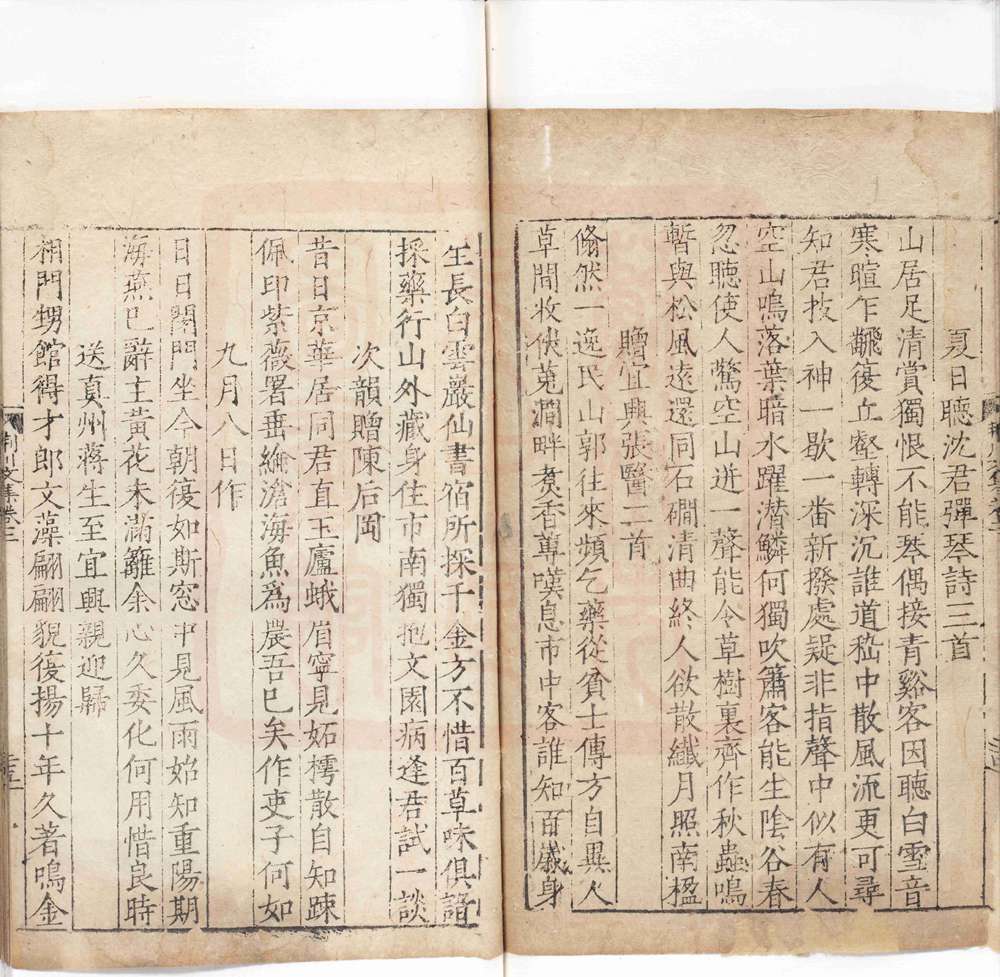 夏日聽沈君彈琴詩三首
山居足清賞獨恨不能琴偶接青谿客因聽白雪音
寒暄乍飜復丘壑轉深沉誰道嵇中散風流更可尋
知君技入神一歇一番新撥處疑非指聲中似有人
空山鳴落葉暗水躍潜鱗何獨吹簫客能生陰谷春
忽聽使人驚空山迸一聲能令草樹裏齊作秋蟲鳴
暫與松風遠還同石磵清曲終人欲散纖月照南楹
贈宜興張醫二首
翛然一逸民山郭往來頻乞藥從貧士傳方自異人
草間收伏菟澗畔煑香蓴嘆息市中客誰知百歲身
生長白雲巖仙書宿所探千金方不惜百草味俱諳
採藥行山外藏身住市南獨抱文園病逢君試一談
次韻贈陳后岡
昔日京華居同君直玉廬蛾眉寧見妬樗散自知踈
佩印紫薇署垂綸滄海魚爲農吾已矣作吏子何如
九月八日作
日日閉門坐今朝復如斯窓中見風雨始知重陽期
海燕已辭主黃花未滿籬余心久委化何用惜良時
送真州蔣生至宜興親迎歸
相門甥館得才郎文藻翩翩貌復揚十年久著鳴金
荆川文集卷三